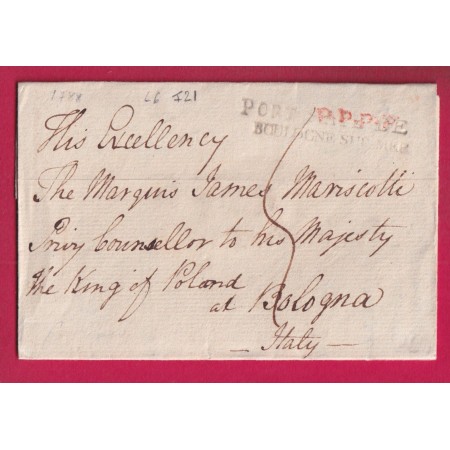 1788
PORT PAYE
P.P.P.P.
BOULOGNE SUR MER
His Excellency
The Marquis James Mariscotti
Privy Counsellor to his Majesty
the King of Poland
at Bologna
— Italy —